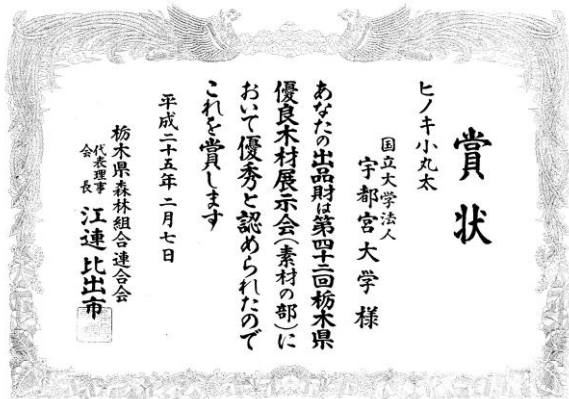 賞状
ヒノキ小丸太
国立大学法人
宇都宮大学 様
あなたの出品財は第四十二回栃木県
優良木材展示会(素材の部)に
おいて優秀と認められたので
これを賞します
平成二十五年二月七日
栃木県森林組合連合会
代表理事
会長 江連比出市